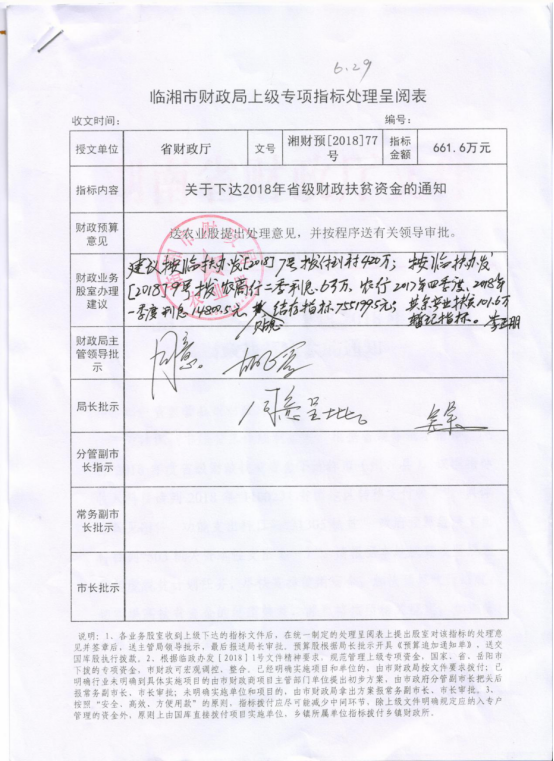 6.29
临湘市财政局上级专项指标处理呈阅表
收文时间： 编号：
授文单位 省财政厅 文号 湘财预[2018]77号 指标金额 661.6万元
指标内容 关于下达2018年省级财政扶贫资金的通知
财政预算意见 送农业股提出处理意见，并按程序送有关领导审批。
财政业务股室办理建议
建议按临扶办发[2018]7号拨付到村420万；按临扶办发
[2018]9号拨农商行二季利息6.3万，农行2017年四季度、2018年
一季度利息14800.5元，结存指标755199.5元；其余产业扶贫101.6万
登记指标。
财政局主管领导批示 同意。
局长批示 同意呈批。
分管副市长指示
常务副市长批示
市长批示
说明：1、各业务股室收到上级下达的指标文件后，在统一制定的处理呈阅表上提出股室对该指标的处理意
见并签章后，送主管局领导批示，最后报送局长审批，预算股根据局长批示开具《预算追加通知单》，送交
国库股执行拨款。2、根据临政办发[2018]1号文件精神要求，规范管理上级专项资金，国家、省、岳阳市
下拨的专项资金，市财政可宏观调控、整合。已经明确实施项目和单位的，由市财政局按文件要求拨付；已
明确行业未明确到具体实施项目的由市财政商项目主管部门单位提出初步方案，由市政府分管副市长把关后
报常务副市长、市长审批；未明确实施单位和项目的，由市财政局拿出方案报常务副市长、市长审批。3、
按照“安全、高效、方便用款”的原则，指标拨付应尽可能减少中间环节，除上级文件明确规定应纳入专户
管理的资金外，原则上由国库直接拨付项目实施单位，乡镇所属单位指标拨付乡镇财政所。